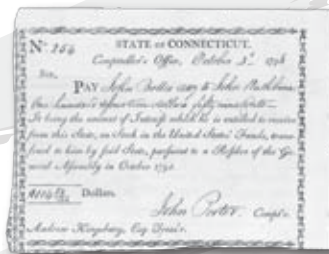 No. 254 STATE OF CONNECTICUT.
Comptroller's Office, October 3d. 179
SIR,
PAY John to John
One hundred dollars fifty
It being the amount of Interest which he is entitled to receive
from this State, on Stock in the United States' Funds, trans-
ferred to him by said State, pursuant to a Resolve of the Ge-
neral Assembly in October 179
Dollars.
John Porter. Compt'r.
Andrew Kingsbury, Esq. Treas'r.